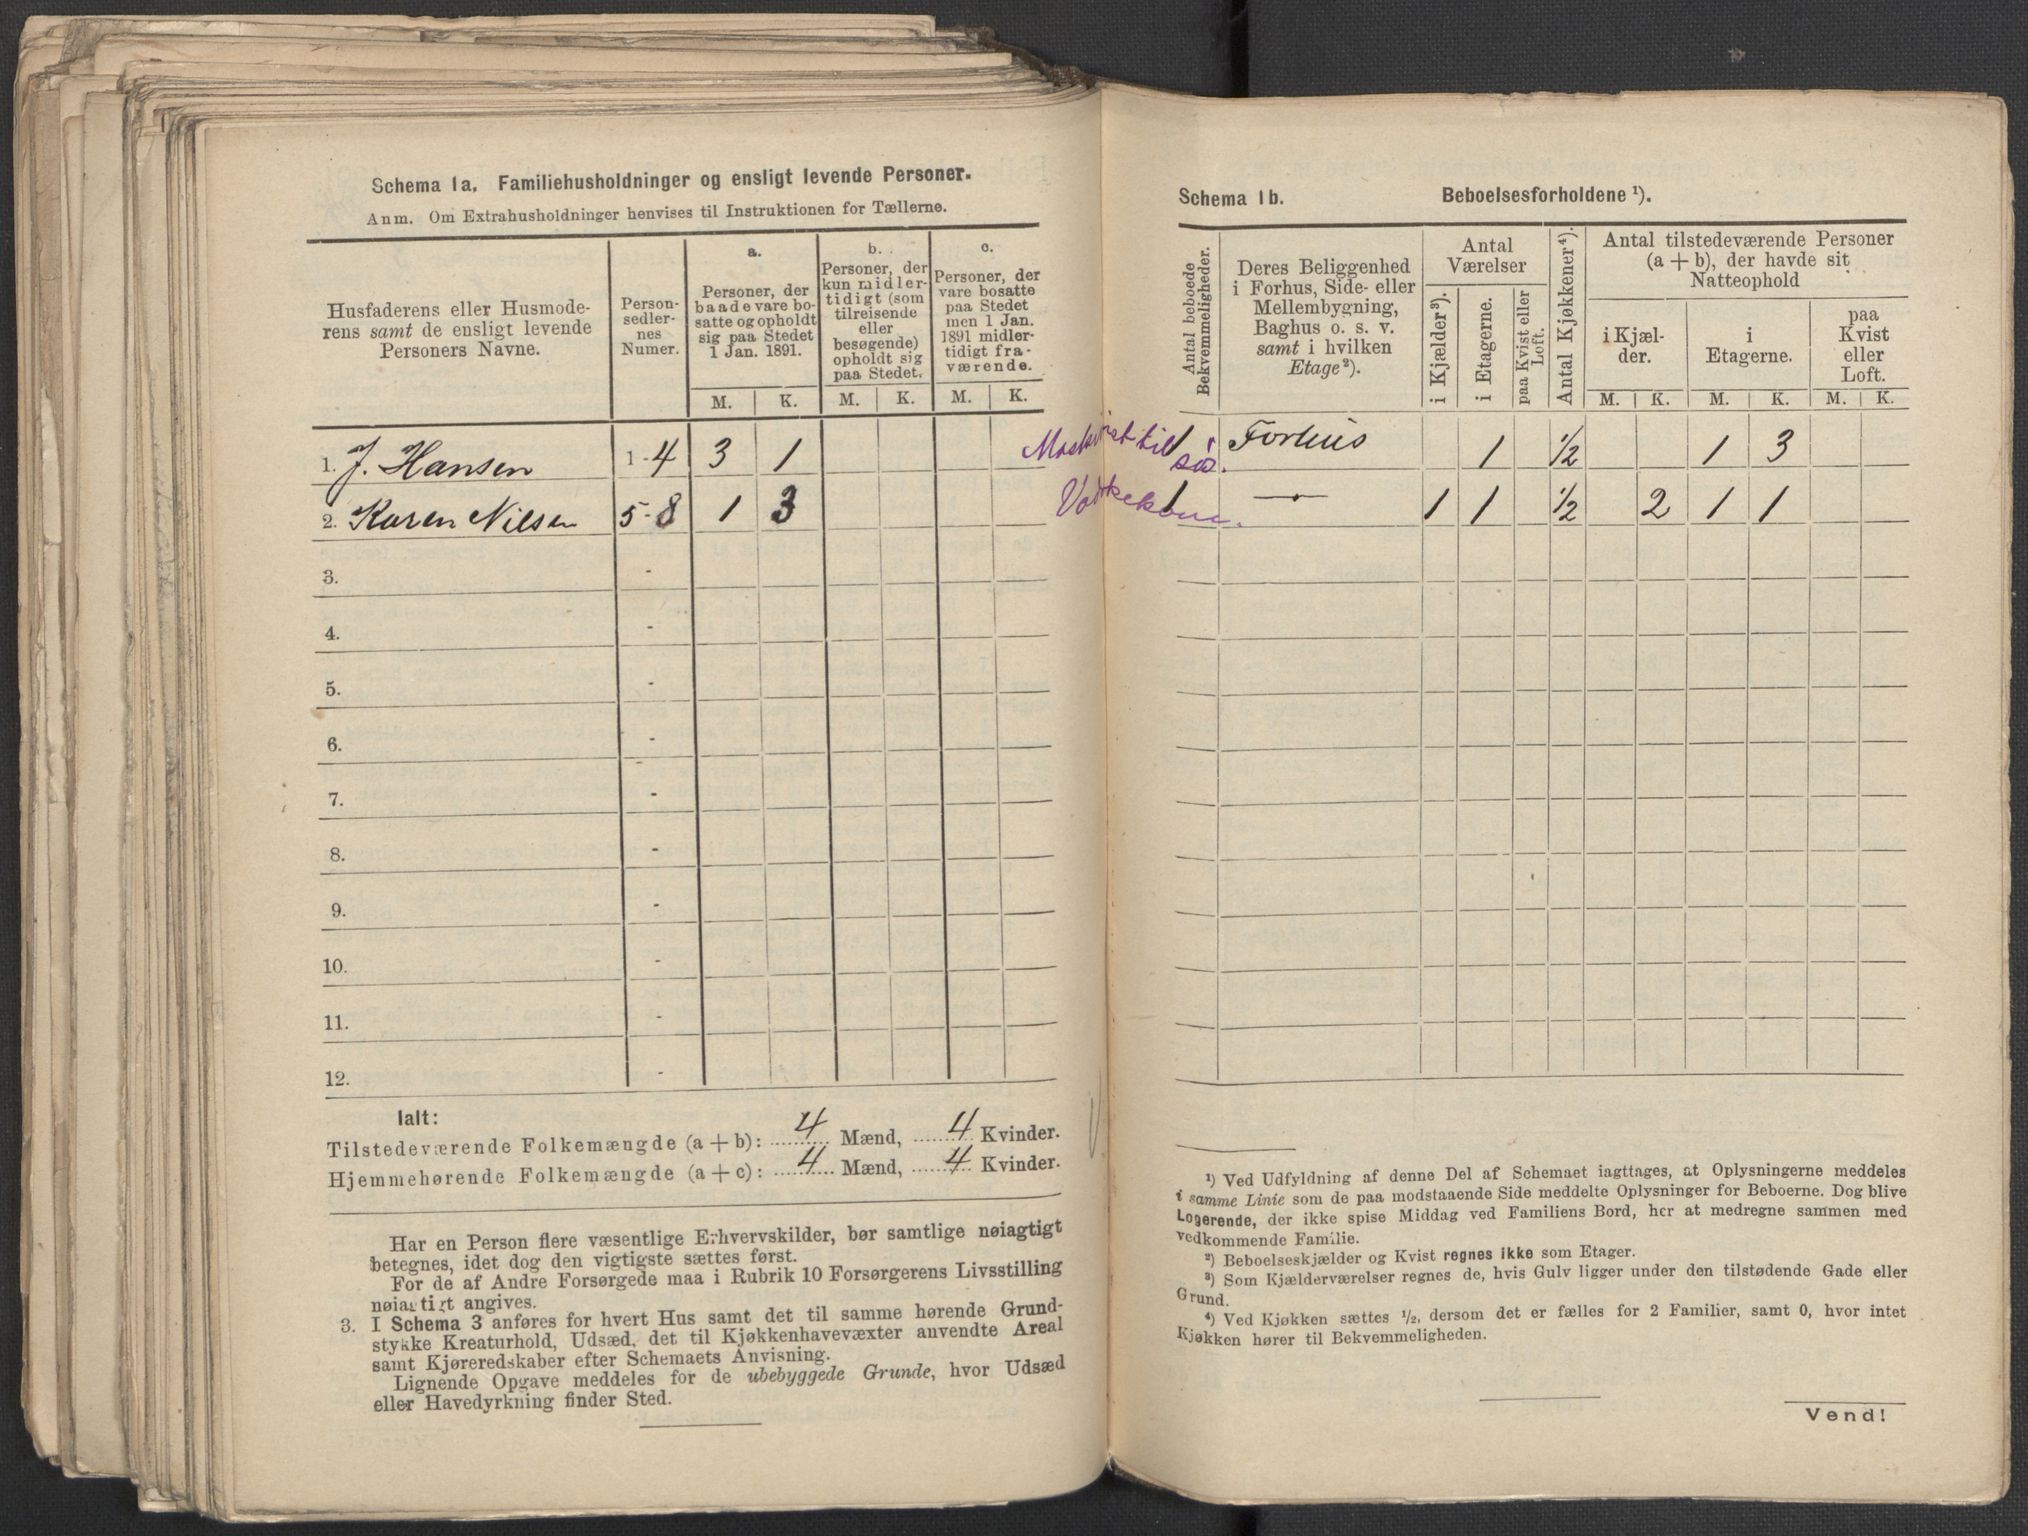 Schema 1a. Familiehusholdninger og ensligt levende Personer.
Anm. Om Extrahusholdninger henvises til Instruktionen for Tællerne.
Husfaderens eller Husmoderens samt de ensligt levende Personers Navne.
Personsedlernes Numer.
a.
Personer, der baade vare bosatte og opholdt sig paa Stedet 1 Jan. 1891.
b.
Personer, der kun midlertidigt (som tilreisende eller besøgende) opholdt sig paa Stedet.
c.
Personer, der vare bosatte paa Stedet men 1 Jan. 1891 midlertidigt fraværende.
M. K. M. K. M. K.
1. J. Hansen 1-4 3 1
2. Karen Nilsen 5-8 1 3
3. -
4. -
5. -
6. -
7. -
8. -
9. -
10. -
11. -
12. -
Ialt:
Tilstedeværende Folkemængde (a + b): 4 Mænd, 4 Kvinder.
Hjemmehørende Folkemængde (a + c): 4 Mænd, 4 Kvinder.
Har en Person flere væsentlige Erhvervskilder, bør samtlige nøiagtigt
betegnes, idet dog den vigtigste sættes først.
For de af Andre Forsørgede maa i Rubrik 10 Forsørgerens Livsstilling
nøiagtigt angives.
3. I Schema 3 anføres for hvert Hus samt det til samme hørende Grund-
stykke Kreaturhold, Udsæd, det til Kjøkkenhavevæxter anvendte Areal
samt Kjøreredskaber efter Schemaets Anvisning.
Lignende Opgave meddeles for de ubebyggede Grunde, hvor Udsæd
eller Havedyrkning finder Sted.
Schema 1b. Beboelsesforholdene ¹).
Antal beboede Bekvemmeligheder.
Deres Beliggenhed i Forhus, Side- eller Mellembygning, Baghus o. s. v. samt i hvilken Etage²).
Antal Værelser
i Kjælder³).
i Etagerne.
paa Kvist eller Loft.
Antal Kjøkkener⁴).
Antal tilstedeværende Personer (a + b), der havde sit Natteophold
i Kjælder.
i Etagerne.
paa Kvist eller Loft.
M. K. M. K. M. K.
Maskinist til søs.
1 Forhus 1 ½ 1 3
Vaskekone.
1 —〃— 1 1 ½ 2 1 1
¹) Ved Udfyldning af denne Del af Schemaet iagttages, at Oplysningerne meddeles
i samme Linie som de paa modstaaende Side meddelte Oplysninger for Beboerne. Dog blive
Logerende, der ikke spise Middag ved Familiens Bord, her at medregne sammen med
vedkommende Familie.
²) Beboelseskjælder og Kvist regnes ikke som Etager.
³) Som Kjælderværelser regnes de, hvis Gulv ligger under den tilstødende Gade eller
Grund.
⁴) Ved Kjøkken sættes ½, dersom det er fælles for 2 Familier, samt 0, hvor intet
Kjøkken hører til Bekvemmeligheden.
Vend!